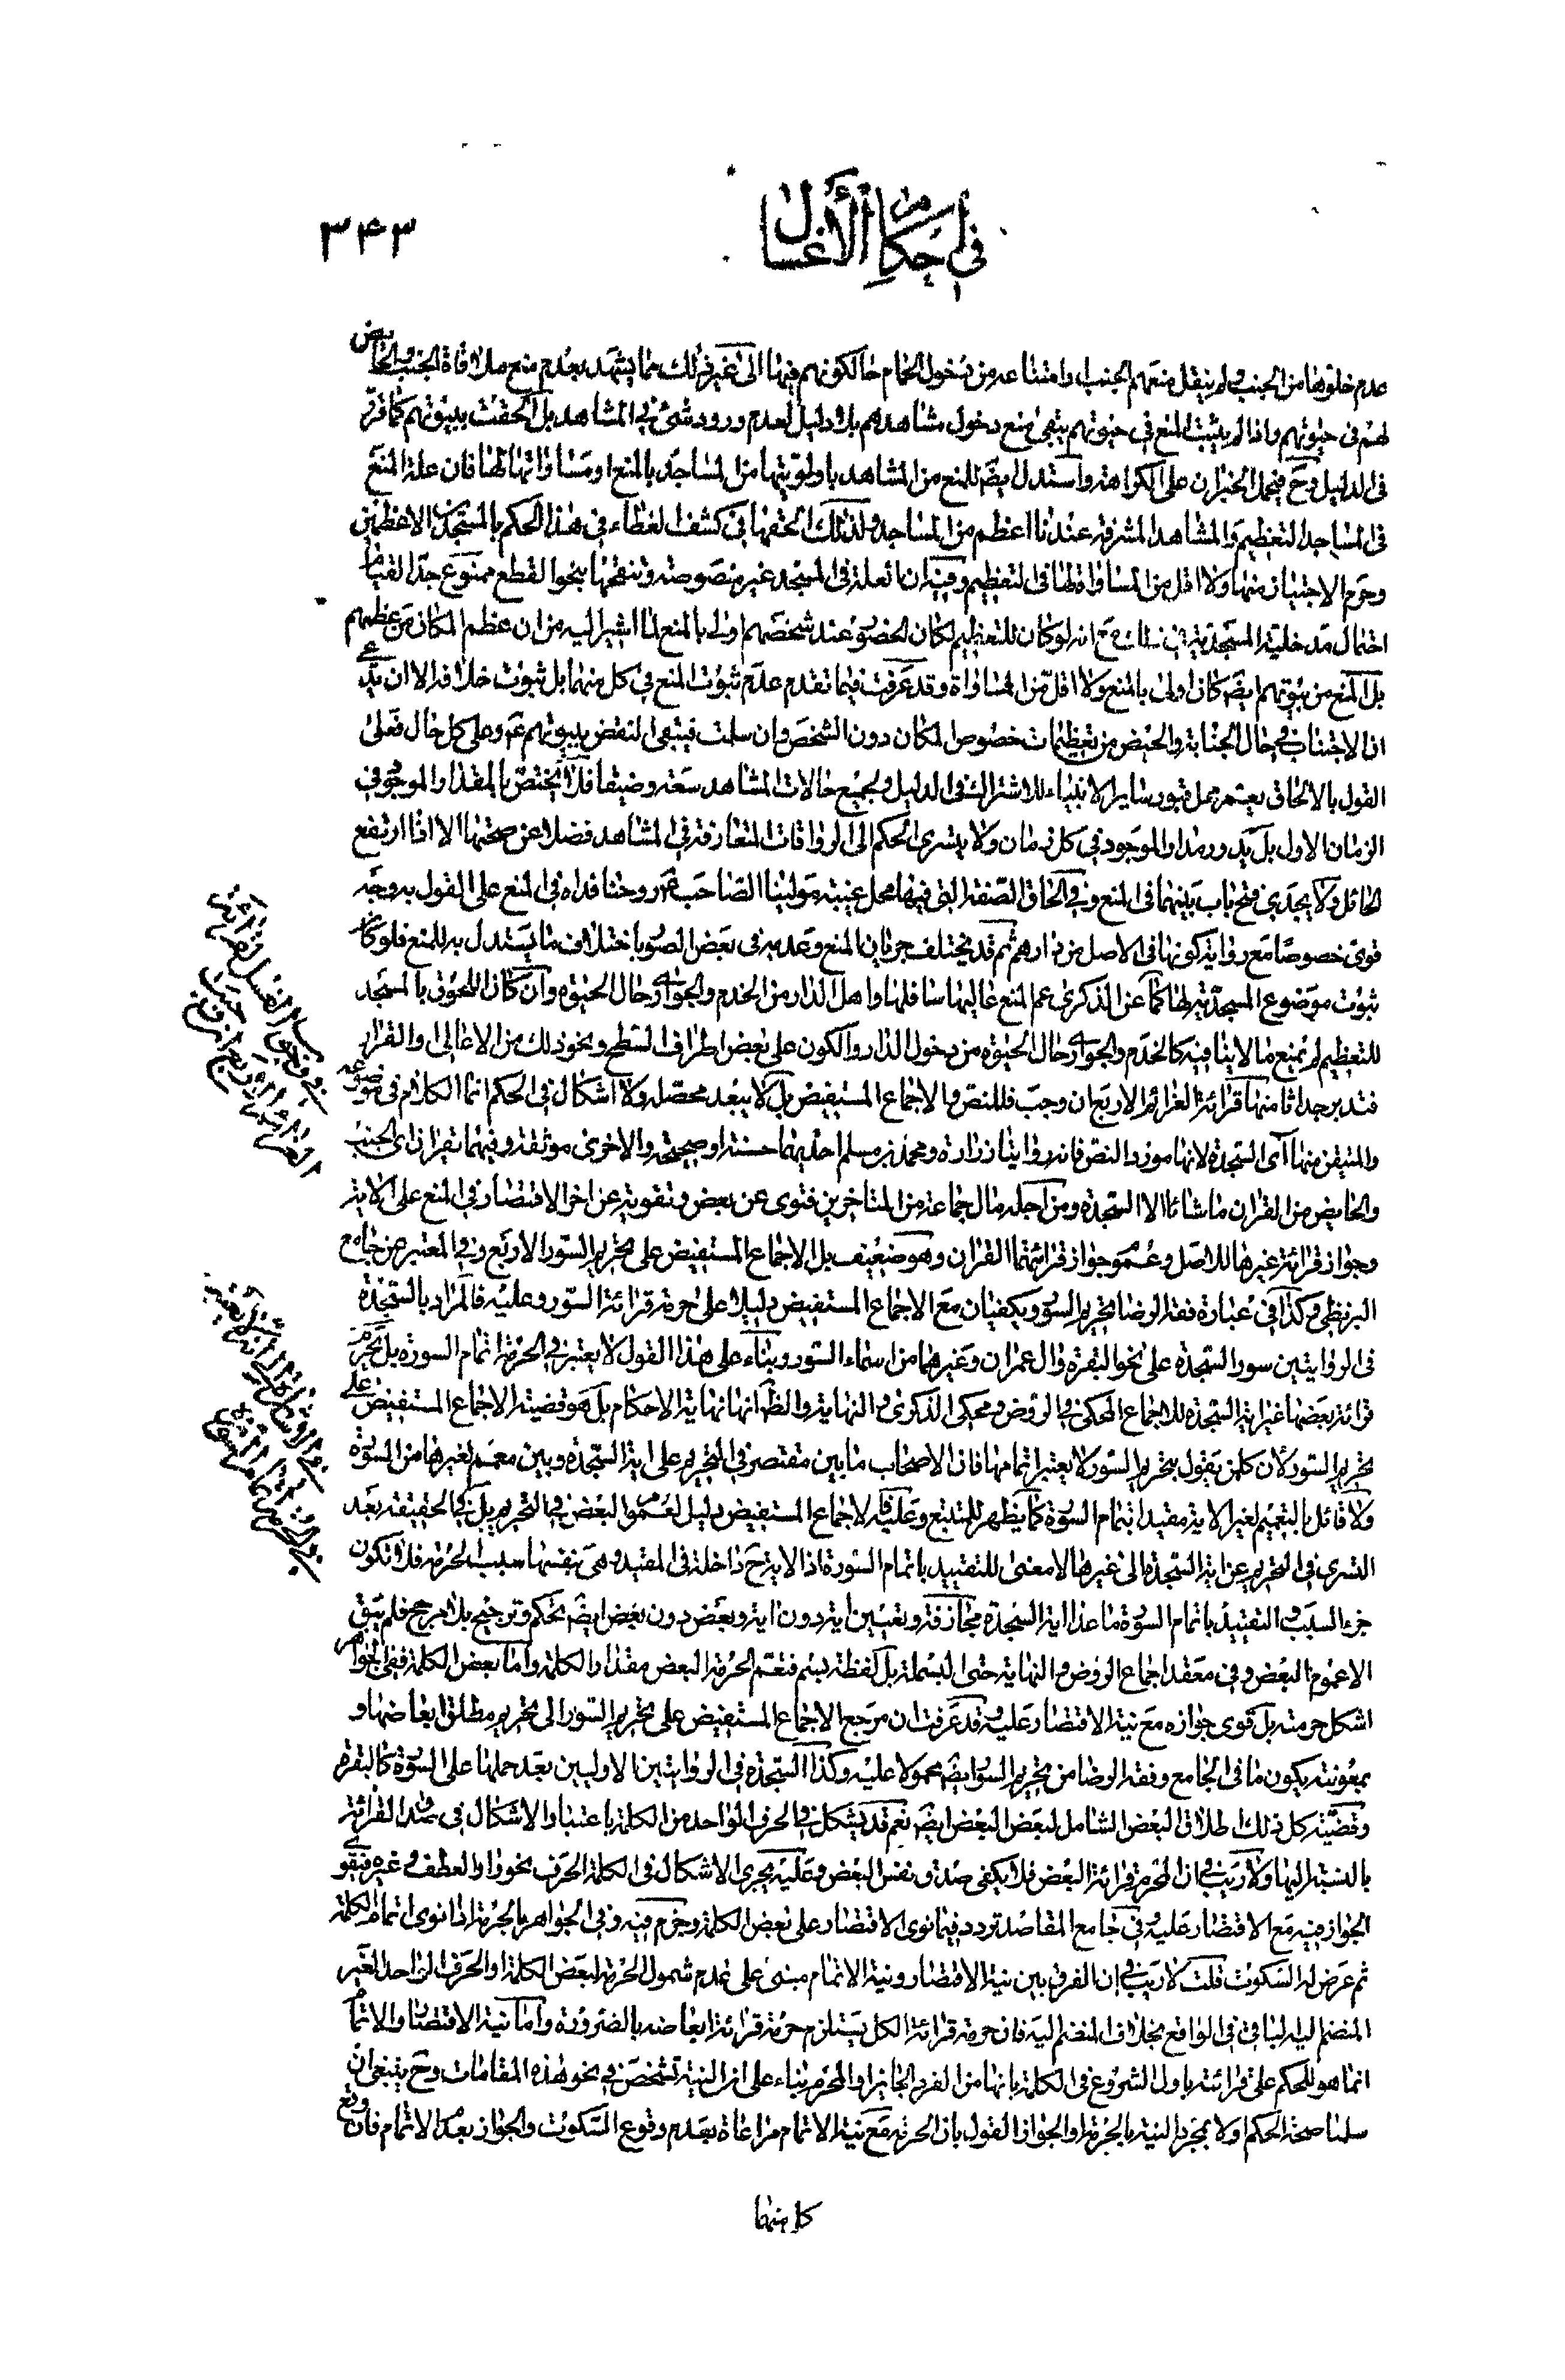 في احكام الأغسال
٣٤٣
عدم خلوها من الجنب ولم ينقل منعهم الجنب وامتناعه من دخول الحمام حالكونهم فيها الى غير ذلك مما يشهد بعدم منع ملاقاة الجنب والحايض
لهم في حيوتهم واذا لم يثبت المنع في حيوتهم يبقى منع دخول مشاهدهم بلا دليل لعدم ورود شئ في المشاهد بل الحقت ببيوتهم كما قرر
في الدليل وح فيحمل الخبران على الكراهة واستدل ايضا للمنع من المشاهد باولويتها من المساجد بالمنع او مساواتها لها فان علة المنع
في المساجد التعظيم والمشاهد المشرفة عندنا اعظم من المساجد ولذلك الحقها في كشف الغطاء في هذا الحكم بالمسجدين الاعظمين
وحرم الاجتياز منها ولا اقل من المساواة لها في التعظيم وفيه ان العلة في المسجد غير منصوصة وتنقيحها بنحو القطع ممنوع جدا لقيام
احتمال مدخلية المسجدية في ذلك مع انه لو كان للتعظيم لكان الحضور عند شخصهم اولى بالمنع لما اشير اليه من ان عظم المكان من عظمهم
بل المنع من بيوتهم ايضا كان اولى بالمنع ولا اقل من المساواة وقد عرفت فيما تقدم عدم ثبوت المنع في كل منهما بل ثبوت خلافه الا ان يدعى
ان الاجتناب في حال الجنابة والحيض من تعظيمات خصوص المكان دون الشخص وان سلمت فيبقى النقض ببيوتهم ع وعلى كل حال فعلى
القول بالالحاق يعم محل قبور ساير الانبياء للاشتراك في الدليل ولجميع حالات المشاهد سعة وضيقا فلا يختص بالمقدار الموجود في
الزمان الاول بل يدور مدار الموجود في كل زمان ولا يسرى الحكم الى الرواقات المتعارفة في المشاهد فضلا عن صحنها الا اذا ارتفع
الحائل ولا يجدي فتح باب بينهما في المنع وفي الحاق الصفة التي فيها محل غيبة مولينا الصاحب عج روحنا فداه في المنع على القول به وجه
قوي خصوصا مع رواية كونها في الاصل من دارهم ثم قد يختلف جريان المنع وعدمه في بعض الصور باختلاف ما يستدل به للمنع فلو كان
ثبوت موضوع المسجدية لها كما عن الذكرى عم المنع عاليها سافلها واهل الدار من الخدم والجواري حال الحيوة وان كان اللحوق بالمسجد
للتعظيم لم يمنع ما لا ينافيه كالخدم والجواري حال الحيوة من دخول الدار والكون على بعض اطراف السطح ونحو ذلك من الاعالي والقرار
فتدبر جدا منها قرائة العزائم الاربع ان وجب فللنص والاجماع المستفيض بل لا يبعد محصله ولا اشكال في الحكم انما الكلام في موضوعه
والمتيقن منها آي السجدة لانها مورد النص فانه روايتا زرارة ومحمد بن مسلم احديهما حسنة او صحيحة والاخرى موثقة وفيهما تقرءان اي الجنب
والحايض من القران ما شائا الا السجدة ومن اجله مال جماعة من المتاخرين فتوى عن بعض وتقوية عن اخر الاقتصار في المنع على الاية
وجواز قرائة غيرها للاصل وعموم جواز قرائتهما القران وهو ضعيف بل الاجماع المستفيض على تحريم السور الاربع وفي المعتبر عن جامع
البزنطي وكذا في عبارة فقه الرضا تحريم السور ويكفيان مع الاجماع المستفيض دليلا على حرمة قرائة السور وعليه فالمراد بالسجدة
في الروايتين سور السجدة على نحو البقرة وال عمران وغيرهما من اسماء السور وبناء على هذا القول لا يعتبر في الحرمة اتمام السورة بل تحرم
قرائة بعضها غير اية السجدة للاجماع المحكي في الروض ومحكي الذكرى والنهاية والظ انها نهاية الاحكام بل هو قضية الاجماع المستفيض على
تحريم السور لأن كل من يقول بتحريم السور لا يعتبر اتمامها فان الاصحاب ما بين مقتصر في التحريم على اية السجدة وبين معمم لغيرها من السورة
ولا قائل بالتعميم لغير الاية مقيدا باتمام السورة كما يظهر للمتتبع وعليه فالاجماع المستفيض دليل لعموم البعض في التحريم بل في الحقيقة بعد
التسري في التحريم عن اية السجدة الى غيرها لا معنى للتقييد باتمام السورة اذ الاية ح داخلة في المقيد وهي بنفسها سبب الحرمة فلا تكون
جزء السبب والتقييد باتمام السورة ما عدا اية السجدة مجازفة وتعيين اية دون اية وبعض دون بعض ايضا تحكم وترجيح بلا مرجح فلم يبق
الا عموم البعض وفي معقد اجماع الروض والنهاية حتى البسملة بل لفظة بسم فتعم الحرمة البعض مقدار الكلمة واما بعض الكلمة ففي الجواهر
اشكل حرمته بل قوى جوازه مع نية الاقتصار عليه وقد عرفت ان مرجع الاجماع المستفيض على تحريم السور الى تحريم مطلق ابعاضها و
بمعونته يكون ما في الجامع وفقه الرضا من تحريم السور ايضا محمولا عليه وكذا السجدة في الروايتين الاوليين بعد حملها على السورة كالبقرة
وقضية كل ذلك اطلاق البعض الشامل لبعض البعض ايضا نعم قد يشكل في الحرف الواحد من الكلمة باعتبار الاشكال في صدق القرائة
بالنسبة اليها ولا ريب في ان المحرم قرائة البعض فلا يكفي صدق نفس البعض وعليه يجري الاشكال في الكلمة الحرف نحو واو العطف وغيره فيقوى
الجواز فيه مع الاقتصار عليه وفي جامع المقاصد تردد فيما نوى الاقتصار على بعض الكلمة وجزم فيه وفي الجواهر بالحرمة اذا نوى اتمام الكلمة
ثم عرض له السكوت قلت لا ريب في ان الفرق بين نية الاقتصار ونية الاتمام مبنى على عدم شمول الحرمة لبعض الكلمة او الحرف الواحد الغير
المنضم اليه الباقي في الواقع بخلاف المنضم اليه فان حرمة قرائة الكل يستلزم حرمة قرائة ابعاضه بالضرورة واما نية الاقتصار والاتمام
انما هو للحكم على قرائته باول الشروع في الكلمة بانها من الفرد الجايز او المحرم بناء على ان النية تشخص في نحو هذه المقامات وح ينبغي ان
سلمنا صحة الحكم اولا بمجرد النية بالحرمة او الجواز القول بان الحرمة مع نية الاتمام مراعاة بعدم وقوع السكوت والجواز بعدم الاتمام فان وقع
كل منهما